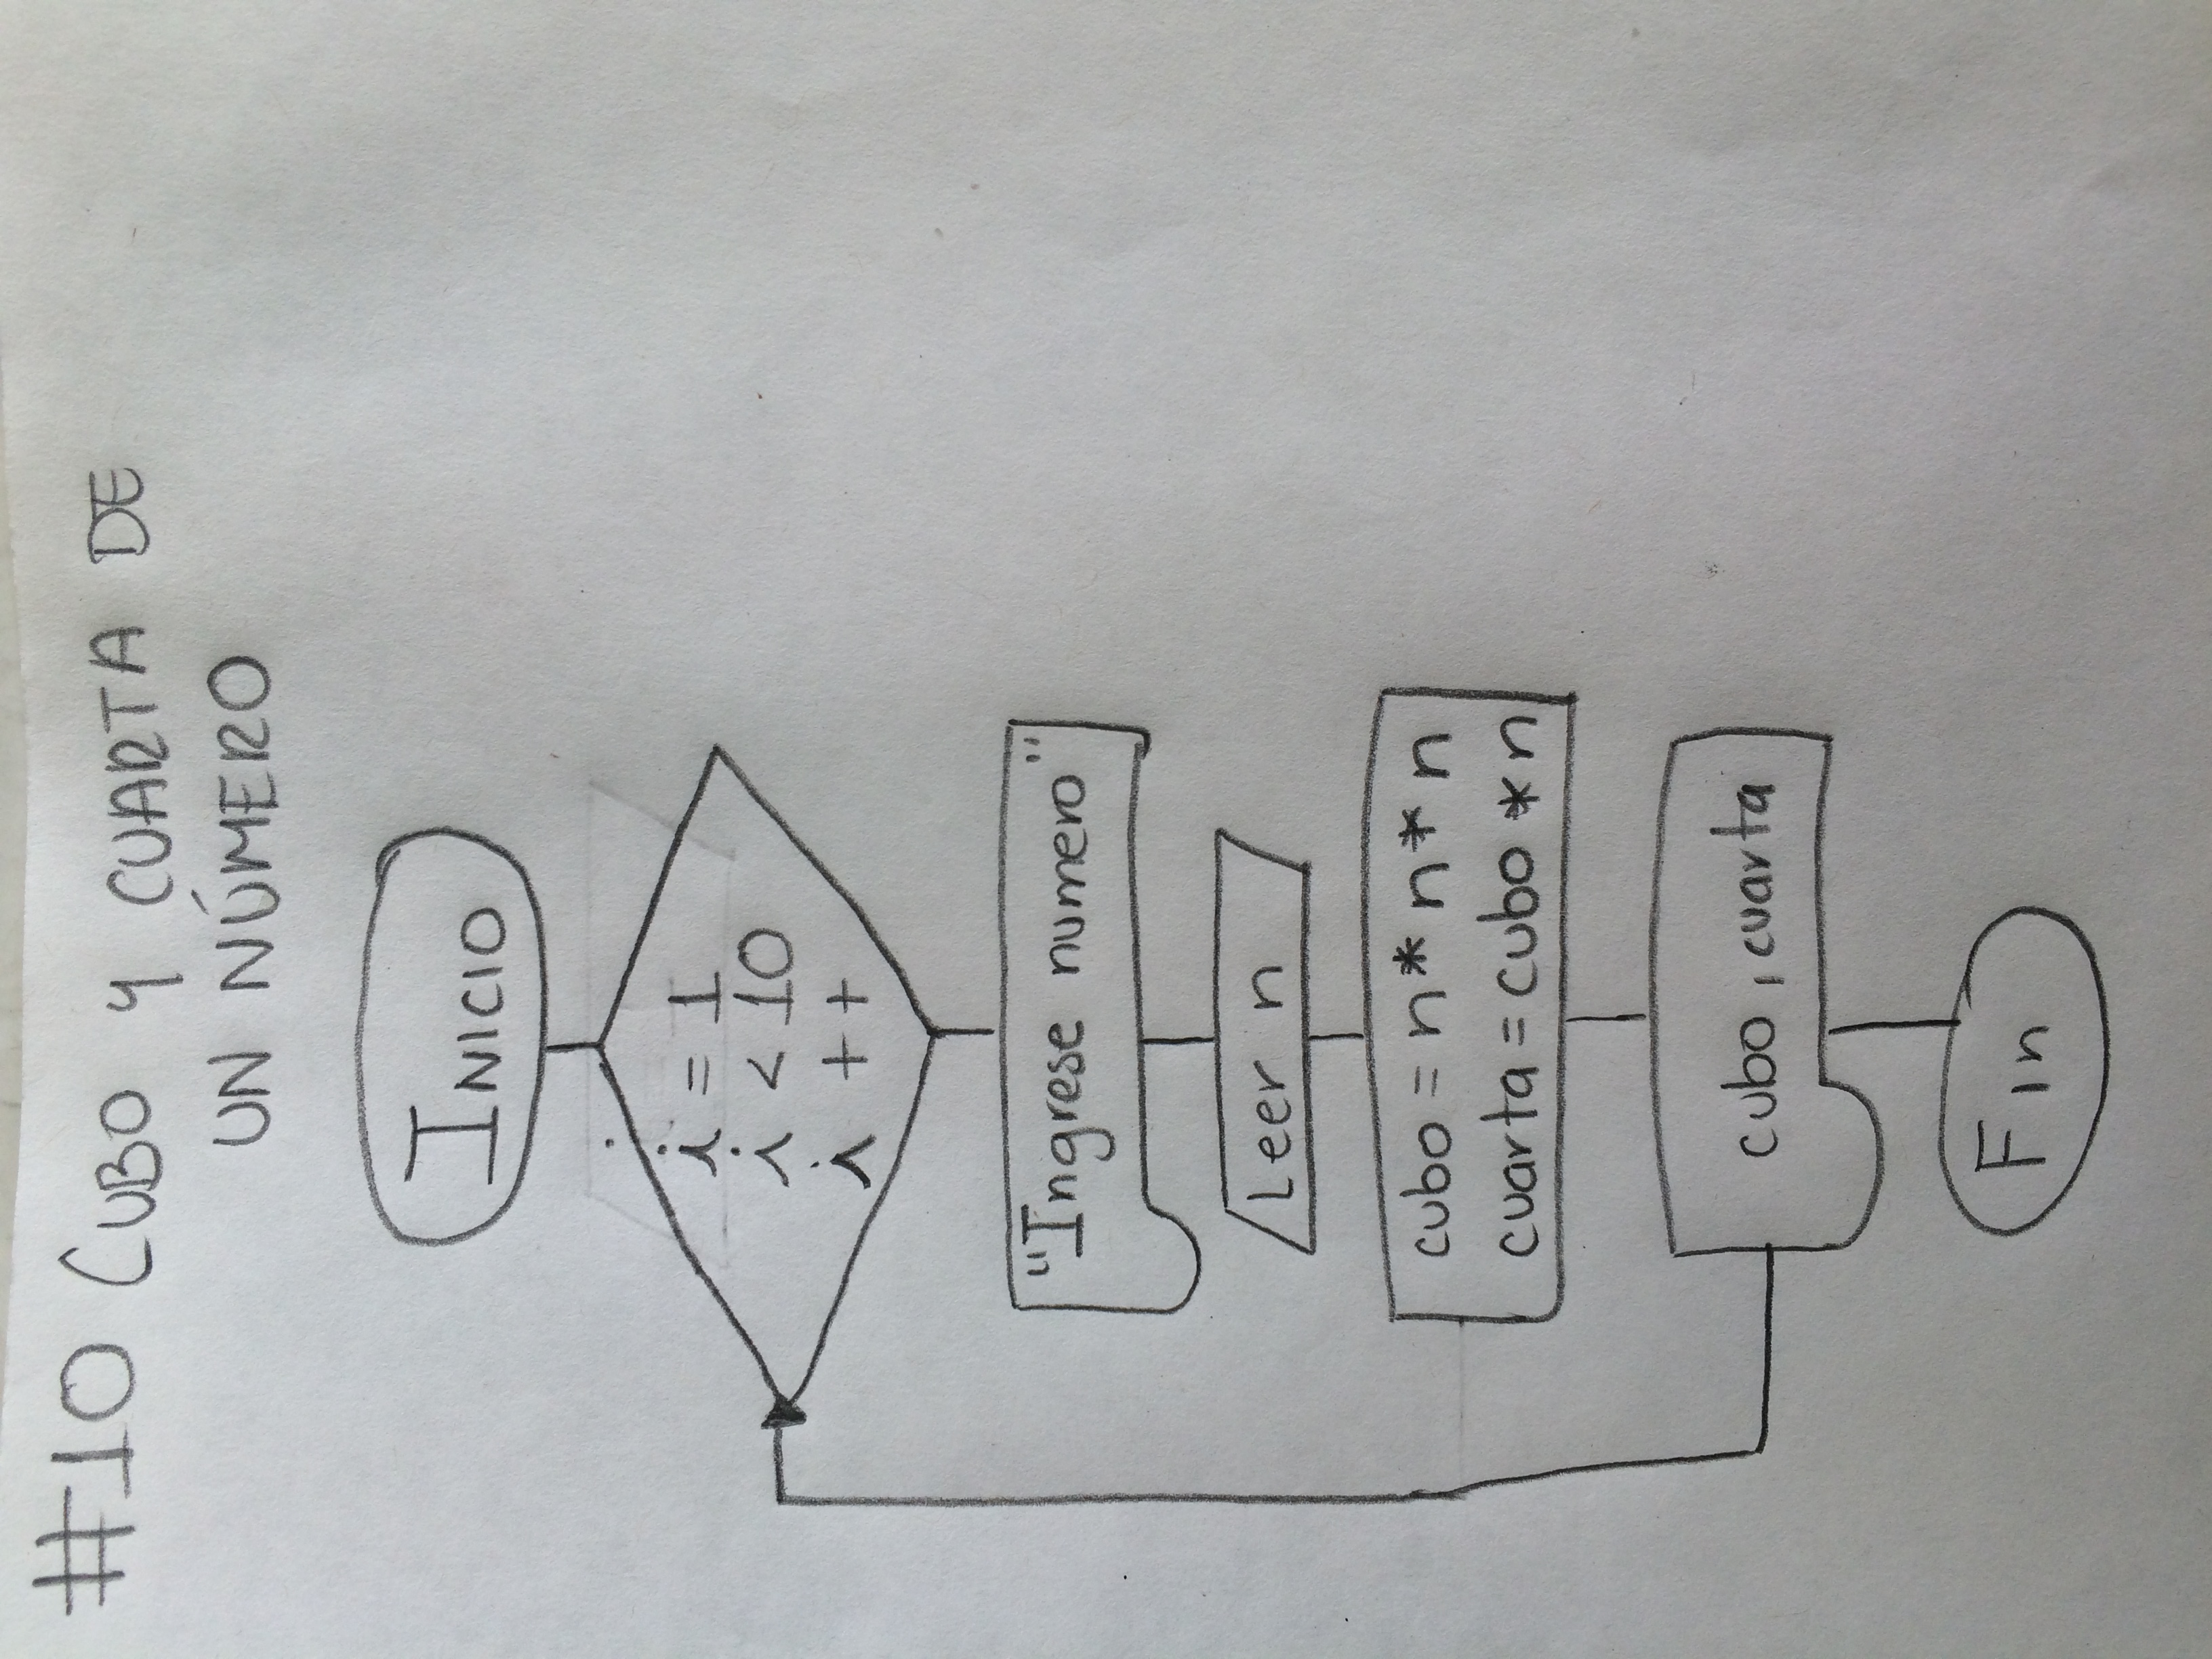 #10 CUBO Y CUARTA DE
UN NÚMERO
INICIO
i = 1
i < 10
i ++
"Ingrese numero"
Leer n
cubo = n * n * n
cuarta = cubo * n
cubo, cuarta
Fin